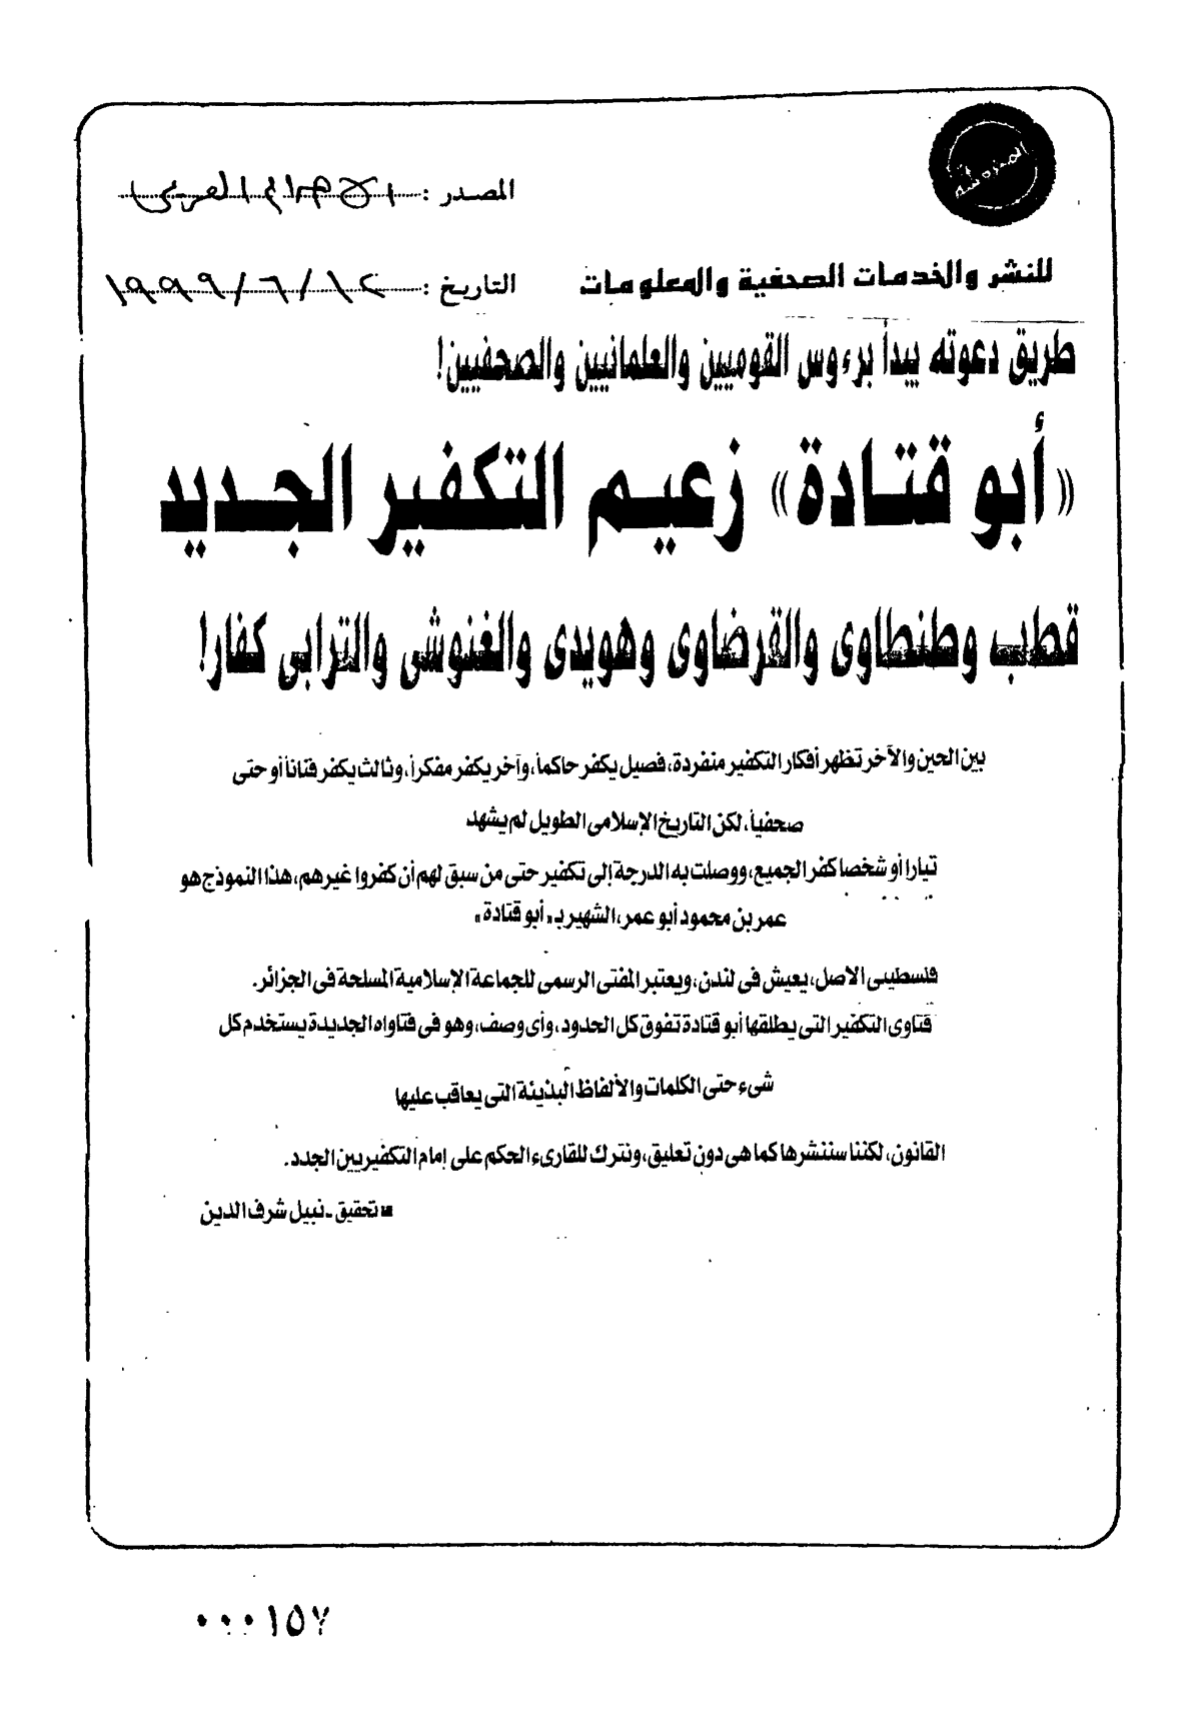 المحروسة
المصدر : الأهرام العربى
للنشر والخدمات الصحفية والمعلومات
التاريخ : ١٢ / ٦ / ١٩٩٩
طريق دعوته يبدأ برءوس القوميين والعلمانيين والصحفيين!
«أبو قتادة» زعيم التكفير الجديد
قطب وطنطاوى والقرضاوى وهويدى والغنوشى والترابى كفار!
بين الحين والآخر تظهر أفكار التكفير منفردة، فصيل يكفر حاكماً، وآخر يكفر مفكراً، وثالث يكفر فناناً أو حتى
صحفياً، لكن التاريخ الإسلامى الطويل لم يشهد
تيارا أو شخصا كفر الجميع، ووصلت به الدرجة إلى تكفير حتى من سبق لهم أن كفروا غيرهم، هذا النموذج هو
عمر بن محمود أبو عمر، الشهير بـ "أبو قتادة"
فلسطينى الاصل، يعيش فى لندن، ويعتبر المفتى الرسمى للجماعة الإسلامية المسلحة فى الجزائر.
فتاوى التكفير التى يطلقها أبو قتادة تفوق كل الحدود، وأى وصف، وهو فى فتاواه الجديدة يستخدم كل
شىء حتى الكلمات والألفاظ البذيئة التى يعاقب عليها
القانون، لكننا سننشرها كما هى دون تعليق، ونترك للقارىء الحكم على إمام التكفيريين الجدد.
■ تحقيق ـ نبيل شرف الدين
٠٠٠١٥٧